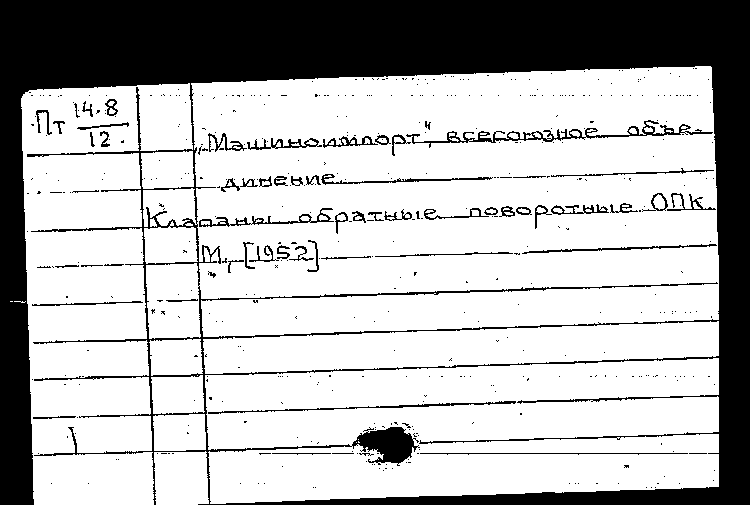 Пт 14.8
12.
„Машиноимпорт“, всесоюзное объе-
динение.
Клапаны обратные поворотные ОПК.
М., [1952]